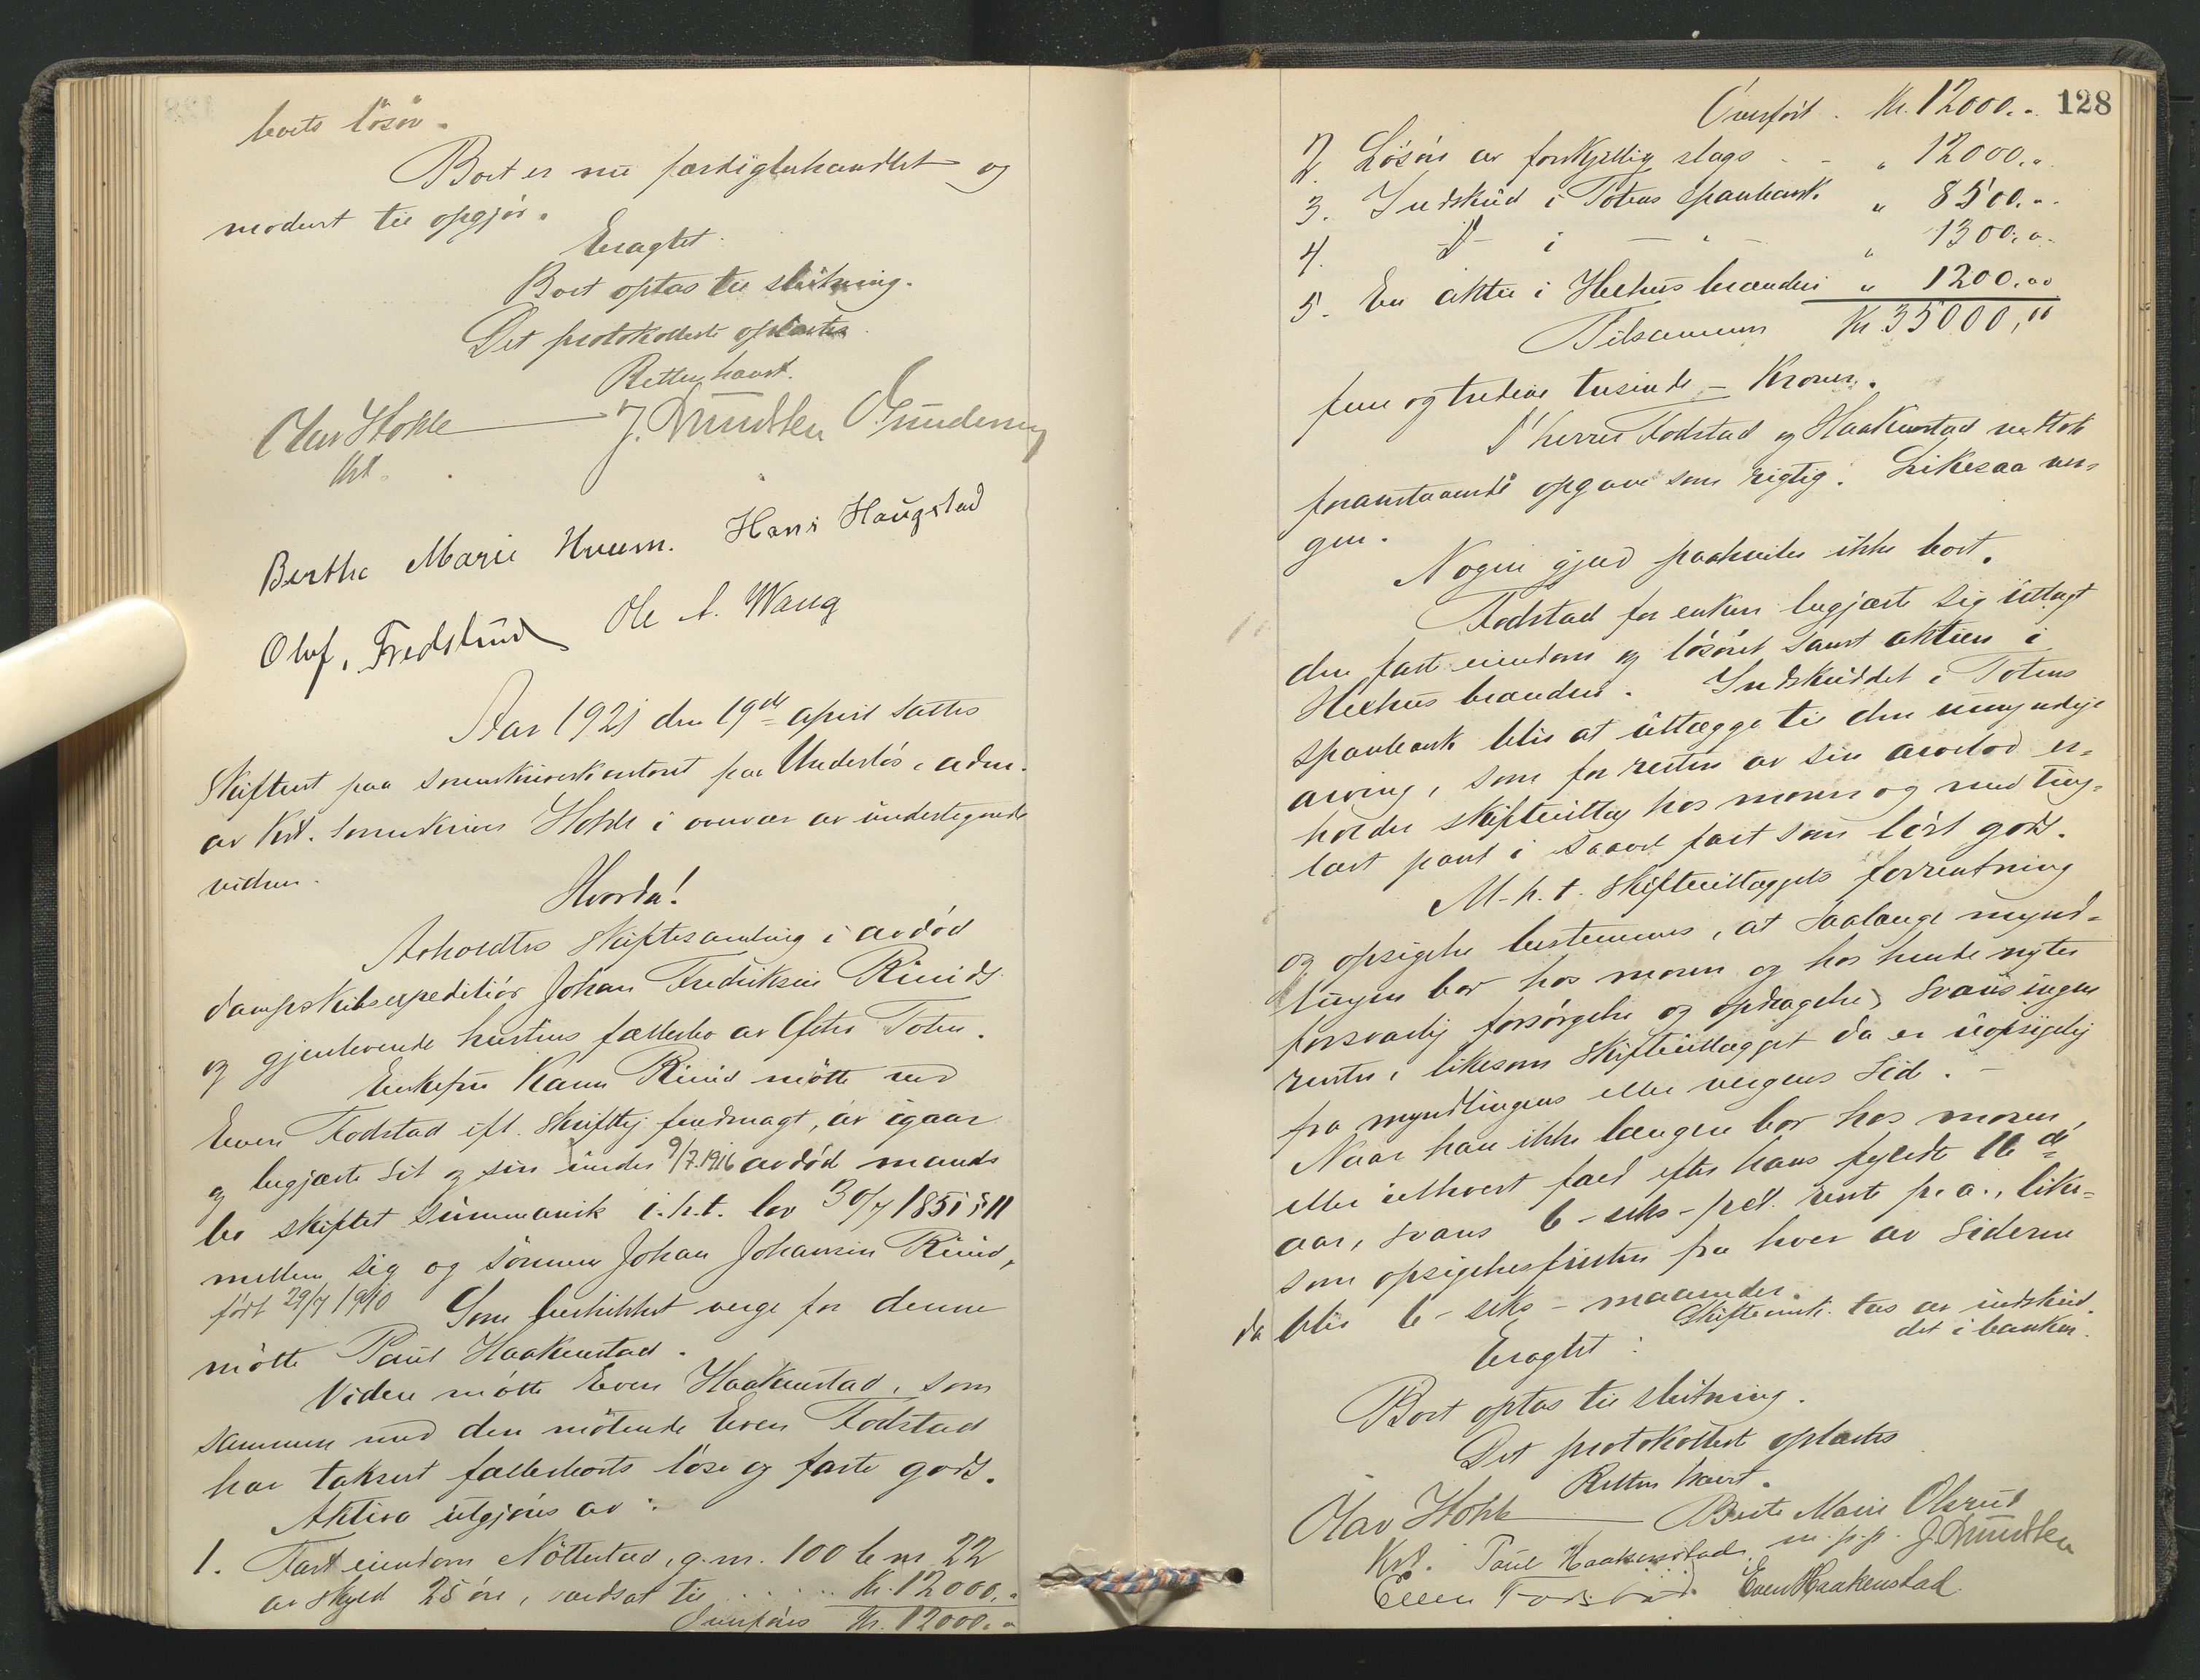 boets løsøre.
Boet er nu færdigbehandlet og
modent til opgjør.
Eragtet.
Boet optas til slutning.
Det protokollerte oplæstes.
Retten hævet.
Olav Hohle J. Knudsen O. Gundersen
kst.
Bertha Marie Hveem. Hans Haugstad
Oluf. Fredslund Ole A. Waag
Aar 1921 den 19de april sattes
Skifteret paa sorenskriverkontoret paa Underlös, adm.
av Kst. sorenskriver Hohle i overvær av undertegnede
vidner.
Hvorda!
Avholdtes skiftesamling i avdød
dampskibsexpeditiör Johan Fredriksen Ruuds
og gjenlevende hustrus fællesbo av Östre Toten.
Enkefru Karen Ruud mötte ved
Even Fodstad ifl. skriftlig fuldmagt, av igaar
og begjærte sit og sin under 9/7.1916 avdöd mands
bo skiftet summarisk i.h.t. lov 30/7 1851 § 11
mellem sig og sönnen Johan Johansen Ruud,
født 29/7 1910 Som beskikket verge for denne
mötte Paul Haakenstad.
Videre mötte Even Haakenstad, som
sammen med den mötende Even Fodstad
har taksert fællesboets löse og faste gods.
Aktiva utgjöres av:
1. Fast eiendom Nöttestad, g.nr. 100 b.nr. 22
av skyld 25 öre, værdsat til ..... Kr. 12000,"
Overføres Kr. 12000."
128
Overført . Kr. 12000."
2. Løsøre av forskjellig slags - - " 12000."
3. Indskud i Totens sparebank. " 8500."
4. -"- i - " - " 1300."
5. En aktie i Heehus brænderi " 1200.""
Tilsammen Kr. 35000,"
fem og tredive tusinde - Kroner.
D'herrer Fodstad og Haakenstad vedtok
foranstaaende opgave som rigtig. Likesaa ver-
gen.
Nogen gjæld paahviler ikke boet.
Fodstad for enken begjærte sig utlagt
den faste eiendom og løsöret samt aktien i
Heehus brænderi. Indskuddet i Totens
sparebank blir at utlægge til den umyndige
arving, som for resten av sin arvelod er-
holder skifteutlæg hos moren og med ting-
læst pant i saavel fast som löst gods.
M.h.t. skifteutlæggets forrentning
og opsigelse bestemmes, at saalænge mynd-
lingen bor hos moren og hos hende nyter
forsvarlig forsörgelse og opdragelse, svares ingen
renter, likesom skifteutlægget da er uopsigelig
fra myndlingens eller vergens side. -
Naar han ikke længer bor hos moren,
eller ialhvert fald efter hans fyldte 16 de
aar, svares 6 - seks - pct. rente p.a., like-
som opsigelsesfristen fra hver av siderne
da blir 6 - seks - maaneder.
Skifteomk. tas av indskud-
det i banken.
Eragtet:
Boet optas til slutning.
Det protokollert oplæstes
Retten hævet.
Olav Hohle Berte Marie Olsrud
Kst. Paul Haakenstad m.p.p. J. Knudsen
Even Fodstad. Even Haakenstad.